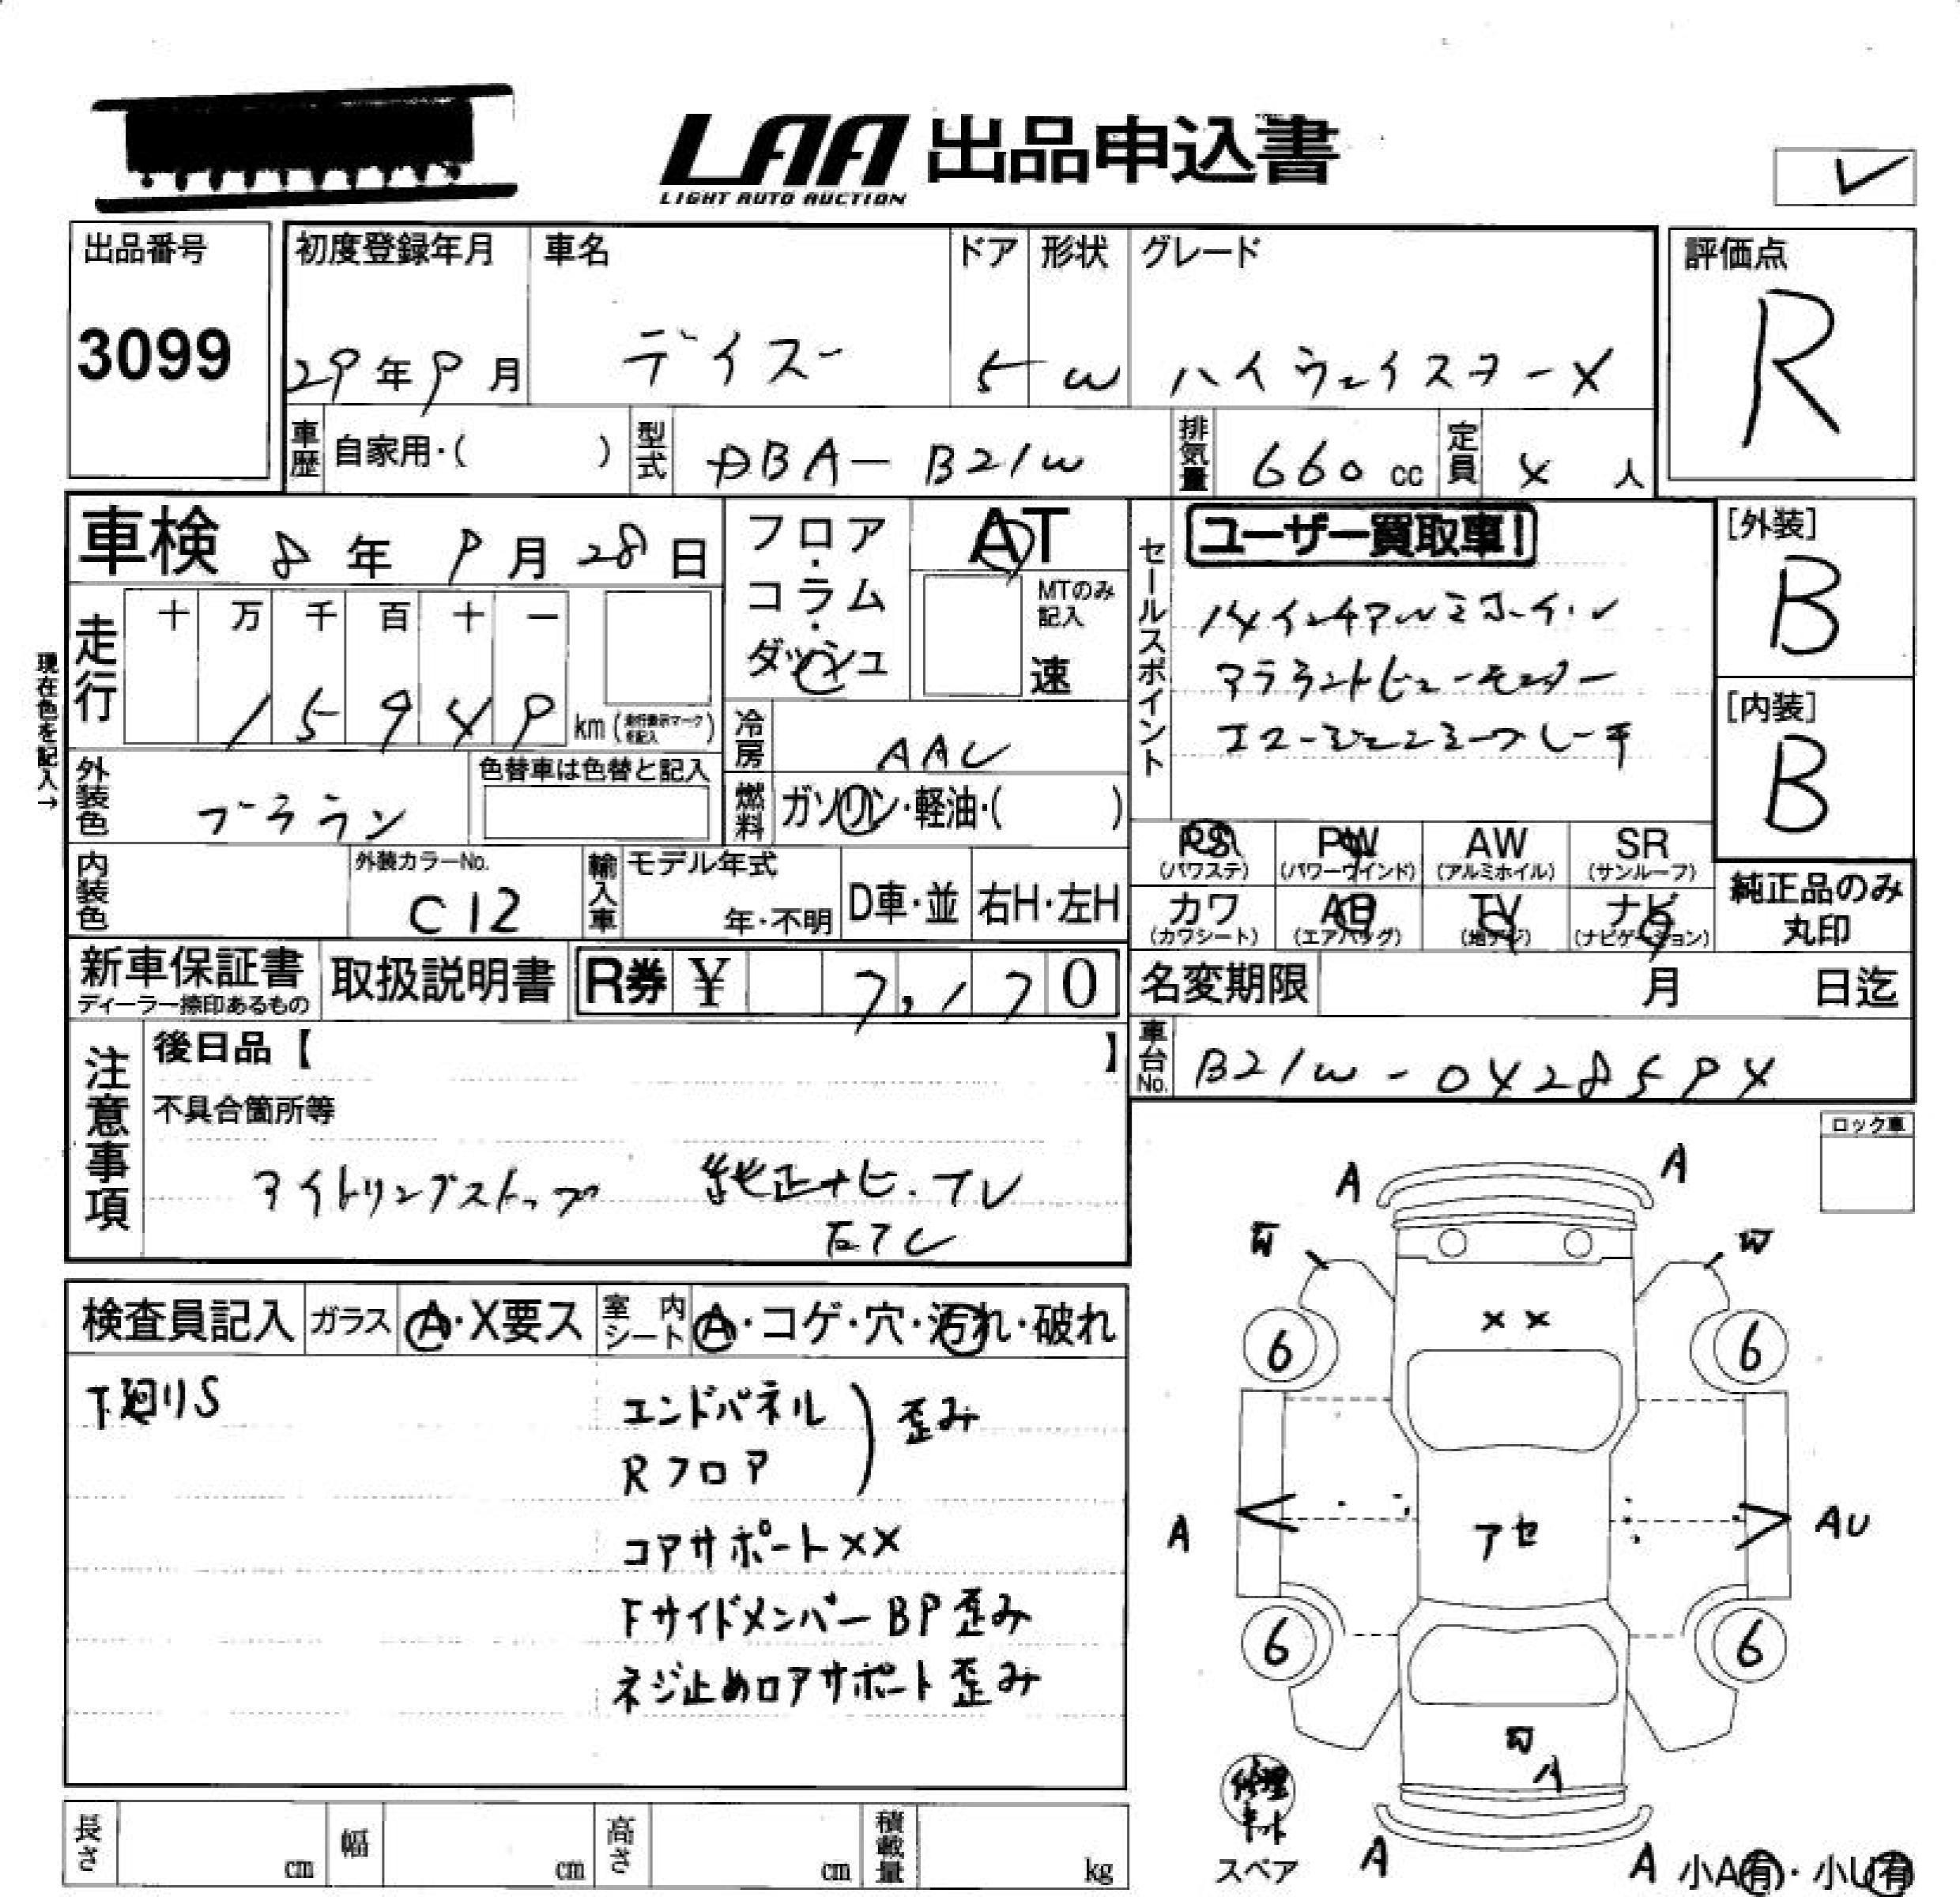 LAA 出品申込書
LIGHT AUTO AUCTION
出品番号
3099
初度登録年月
29年9月
車名
デイズ
ドア
5
形状
W
グレード
ハイウェイスターX
評価点
R
車歴 自家用・( )
型式 DBA-B21W
排気量 660cc
定員 4人
車検 8年9月28日
フロア・コラム・ダッシュ
AT
MTのみ記入
速
セールスポイント
ユーザー買取車!
14インチアルミホイール
アラウンドビューモニター
エマージェンシーブレーキ
[外装]
B
[内装]
B
現在色を記入→
走行
十 万 千 百 十 一
1 5 9 4 9 km (走行表示マークを記入)
冷房 AAC
外装色 ブラウン
色替車は色替と記入
燃料 ガソリン・軽油・( )
内装色
外装カラーNo.
C12
輸入車
モデル年式
年・不明
D車・並
右H・左H
PS
(パワステ)
PW
(パワーウインド)
AW
(アルミホイル)
SR
(サンルーフ)
カワ
(カワシート)
AB
(エアバッグ)
TV
(地デジ)
ナビ
(ナビゲーション)
純正品のみ
丸印
新車保証書
ディーラー捺印あるもの
取扱説明書
R券 ¥ 7,170
名変期限 月 日迄
車台No. B21W-0428594
注意事項
後日品【 】
不具合箇所等
アイドリングストップ 純正ナビ.TV
ETC
ロック車
検査員記入
ガラス A・X要ス
室内シート A・コゲ・穴・汚れ・破れ
下廻りS
エンドパネル
Rフロア
歪み
コアサポートXX
FサイドメンバーBP歪み
ネジ止めロアサポート歪み
A A
W W
X X
6 6
A アセ AU
6 6
W
A
修理キット
スペア
A A
小A有・小U有
長さ cm
幅 cm
高さ cm
積載量 kg